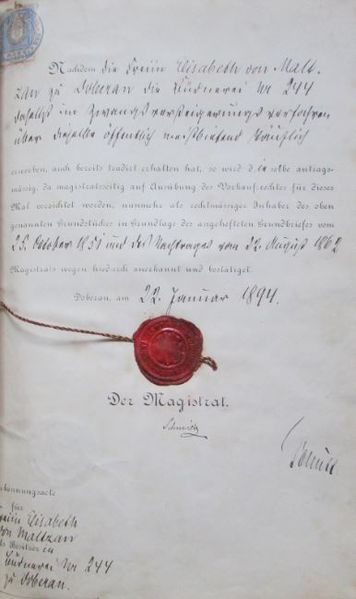 Nachdem die Freiin Elisabeth von Malt-
zan zu Doberan die Büdnerei Nr 244
daselbst im Zwangsversteigerungsverfahren
über dieselbe öffentlich meistbietend käuflich
erworben, auch bereits tradirt erhalten hat, so wird dieselbe antrags-
mässig, da magistratsseitig auf Ausübung des Vorkaufrechtes für dieses
Mal verzichtet worden, nunmehr als rechtmässiger Inhaber des oben
genannten Grundstückes in Grundlage des angehefteten Grundbriefes vom
25. October 1831 und des Nachtrages vom August 1862
Magistrats wegen hiedurch anerkannt und bestätiget.
Doberan, am 22. Januar 1894.
Der Magistrat.
kennungsacte
für
Freiin Elisabeth
von Maltzan
als Besitzer der
Büdnerei Nr 244
zu Doberan.